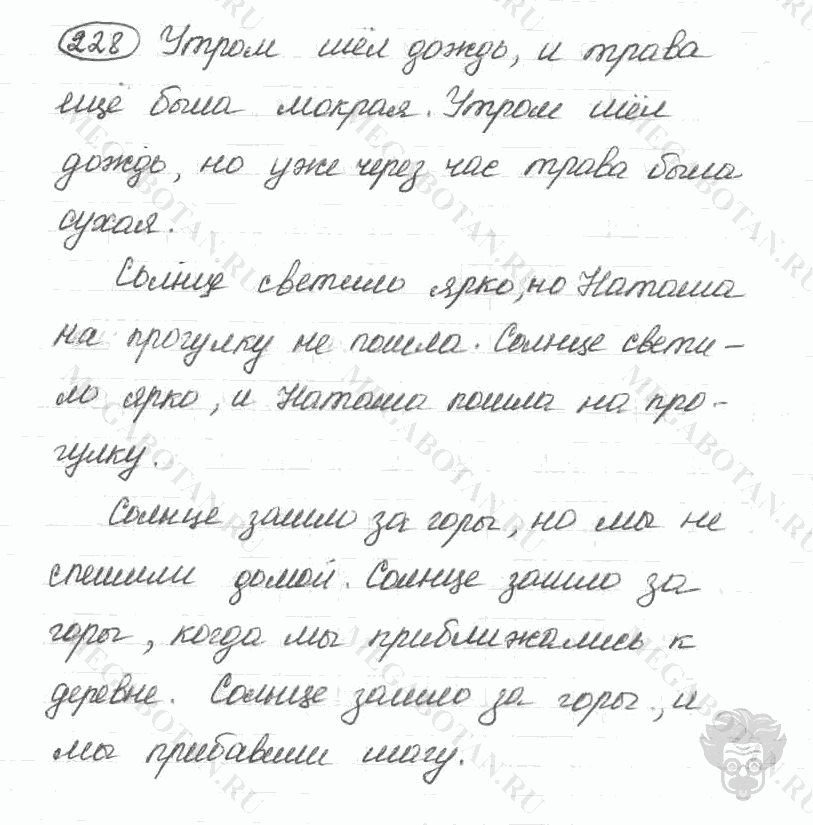 228 Утром шёл дождь, и трава
ещё была мокрая. Утром шёл
дождь, но уже через час трава была
сухая.
Солнце светило ярко, но Наташа
на прогулку не пошла. Солнце свети-
ло ярко, и Наташа пошла на про-
гулку.
Солнце зашло за горы, но мы не
спешили домой. Солнце зашло за
горы, когда мы приближались к
деревне. Солнце зашло за горы, и
мы прибавили шагу.
MEGABOTAN.RU